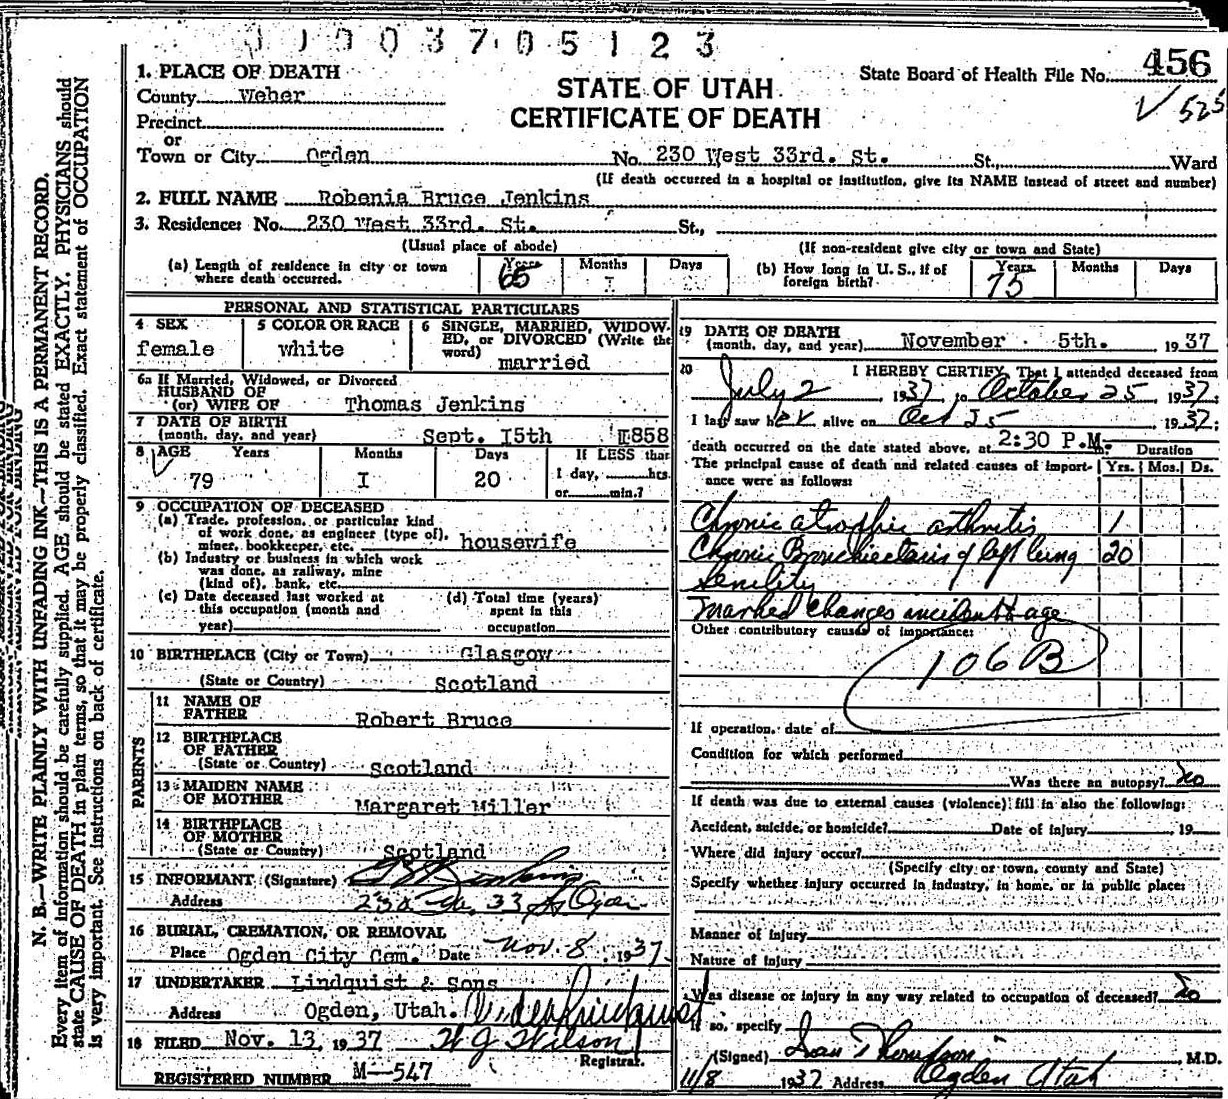 1 1 0 0 3 7 0 5 1 2 3
456
State Board of Health File No.
√ 525
STATE OF UTAH
CERTIFICATE OF DEATH
N. B.—WRITE PLAINLY WITH UNFADING INK—THIS IS A PERMANENT RECORD.
Every item of information should be carefully supplied. AGE should be stated EXACTLY. PHYSICIANS should
state CAUSE OF DEATH in plain terms, so that it may be properly classified. Exact statement of OCCUPATION
is very important. See instructions on back of certificate.
1. PLACE OF DEATH
County Weber
Precinct
or
Town or City Ogden No. 230 West 33rd. St. St., Ward
(If death occurred in a hospital or institution, give its NAME instead of street and number)
2. FULL NAME Robenia Bruce Jenkins
3. Residence: No. 230 West 33rd. St. St.,
(Usual place of abode) (If non-resident give city or town and State)
(a) Length of residence in city or town where death occurred. Years 65 Months I Days
(b) How long in U. S., if of foreign birth? Years 75 Months Days
PERSONAL AND STATISTICAL PARTICULARS
4 SEX female
5 COLOR OR RACE white
6 SINGLE, MARRIED, WIDOWED, or DIVORCED (Write the word) married
6a If Married, Widowed, or Divorced
HUSBAND OF
(or) WIFE OF Thomas Jenkins
7 DATE OF BIRTH
(month, day, and year) Sept. I5th I858
8 AGE Years 79 Months I Days 20
If LESS than
1 day, hrs.
or min.?
9 OCCUPATION OF DECEASED
(a) Trade, profession, or particular kind
of work done, as engineer (type of),
miner, bookkeeper, etc. housewife
(b) Industry or business in which work
was done, as railway, mine
(kind of), bank, etc.
(c) Date deceased last worked at
this occupation (month and
year)
(d) Total time (years)
spent in this
occupation
10 BIRTHPLACE (City or Town) Glasgow
(State or Country) Scotland
PARENTS
11 NAME OF
FATHER Robert Bruce
12 BIRTHPLACE
OF FATHER
(State or Country) Scotland
13 MAIDEN NAME
OF MOTHER Margaret Miller
14 BIRTHPLACE
OF MOTHER
(State or Country) Scotland
15 INFORMANT (Signature) Jenkins
Address 230 W. 33 St Ogden
16 BURIAL, CREMATION, OR REMOVAL
Place Ogden City Cem. Date Nov. 8, 1937
17 UNDERTAKER Lindquist & Sons
Address Ogden, Utah.
18 FILED Nov. 13, 1937 W J Wilson
Registrar.
REGISTERED NUMBER M—547
19 DATE OF DEATH
(month, day, and year) November 5th. 1937
20 I HEREBY CERTIFY, That I attended deceased from
July 2 1937 to October 25, 1937;
I last saw her alive on Oct 25 1937;
death occurred on the date stated above, at 2:30 P.M. m. Duration
The principal cause of death and related causes of importance were as follows: Yrs. Mos. Ds.
Chronic atrophic arthritis 1
Chronic Bronchiectasis of left lung 20
Senility
Marked changes incident to age
Other contributory causes of importance:
106B
If operation, date of
Condition for which performed
Was there an autopsy? no
If death was due to external causes (violence) fill in also the following:
Accident, suicide, or homicide? Date of injury , 19
Where did injury occur?
(Specify city or town, county and State)
Specify whether injury occurred in industry, in home, or in public place:
Manner of Injury
Nature of Injury
Was disease or injury in any way related to occupation of deceased? no
If so, specify
(Signed) Ivan Thompson, M.D.
11/8 1937 Address Ogden Utah